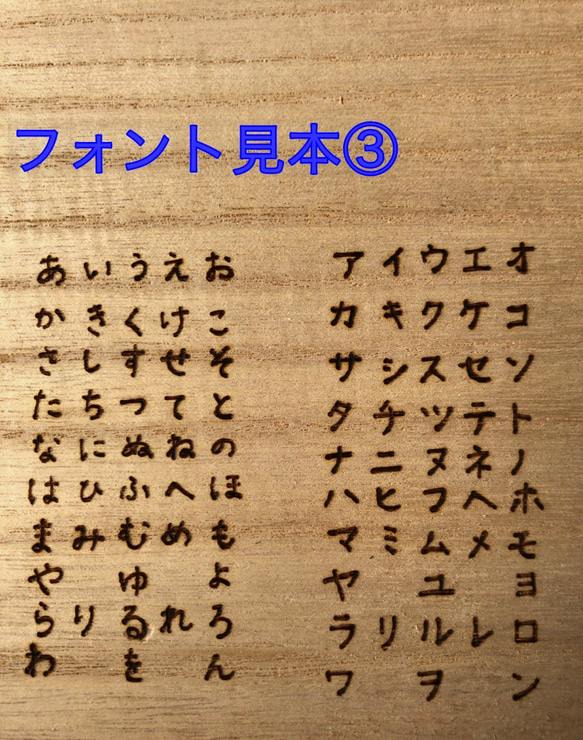 フォント見本③
あいうえお
かきくけこ
さしすせそ
たちつてと
なにぬねの
はひふへほ
まみむめも
やゆよ
らりるれろ
わをん
アイウエオ
カキクケコ
サシスセソ
タチツテト
ナニヌネノ
ハヒフヘホ
マミムメモ
ヤユヨ
ラリルレロ
ワヲン